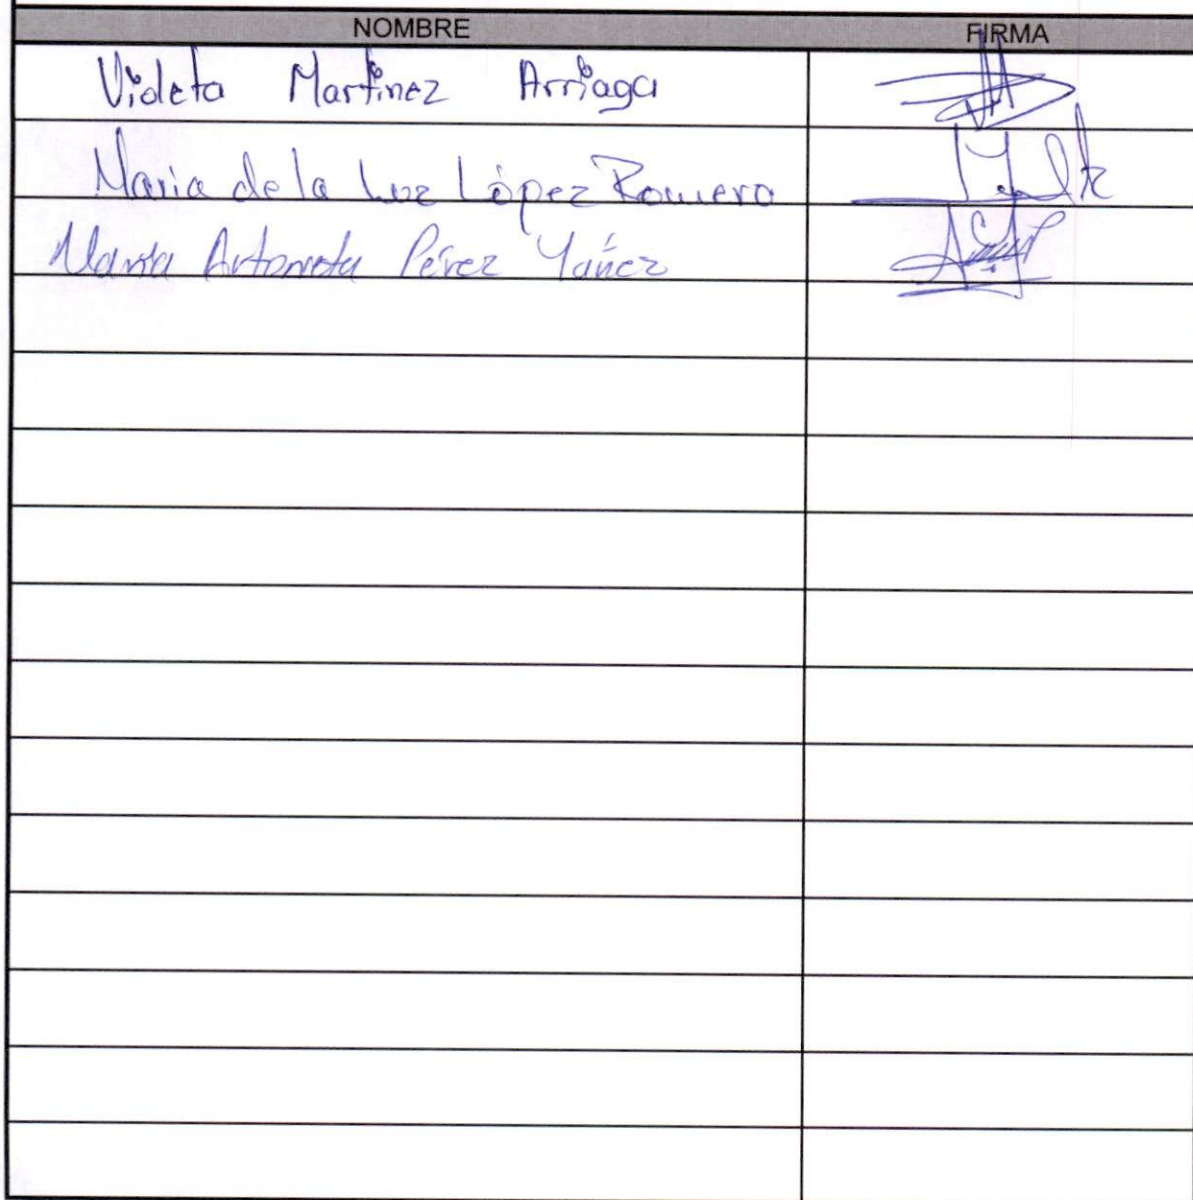 NOMBRE FIRMA
Violeta Martínez Arriaga
Maria de la Luz López Romero
Maria Antonieta Pérez Yáñez